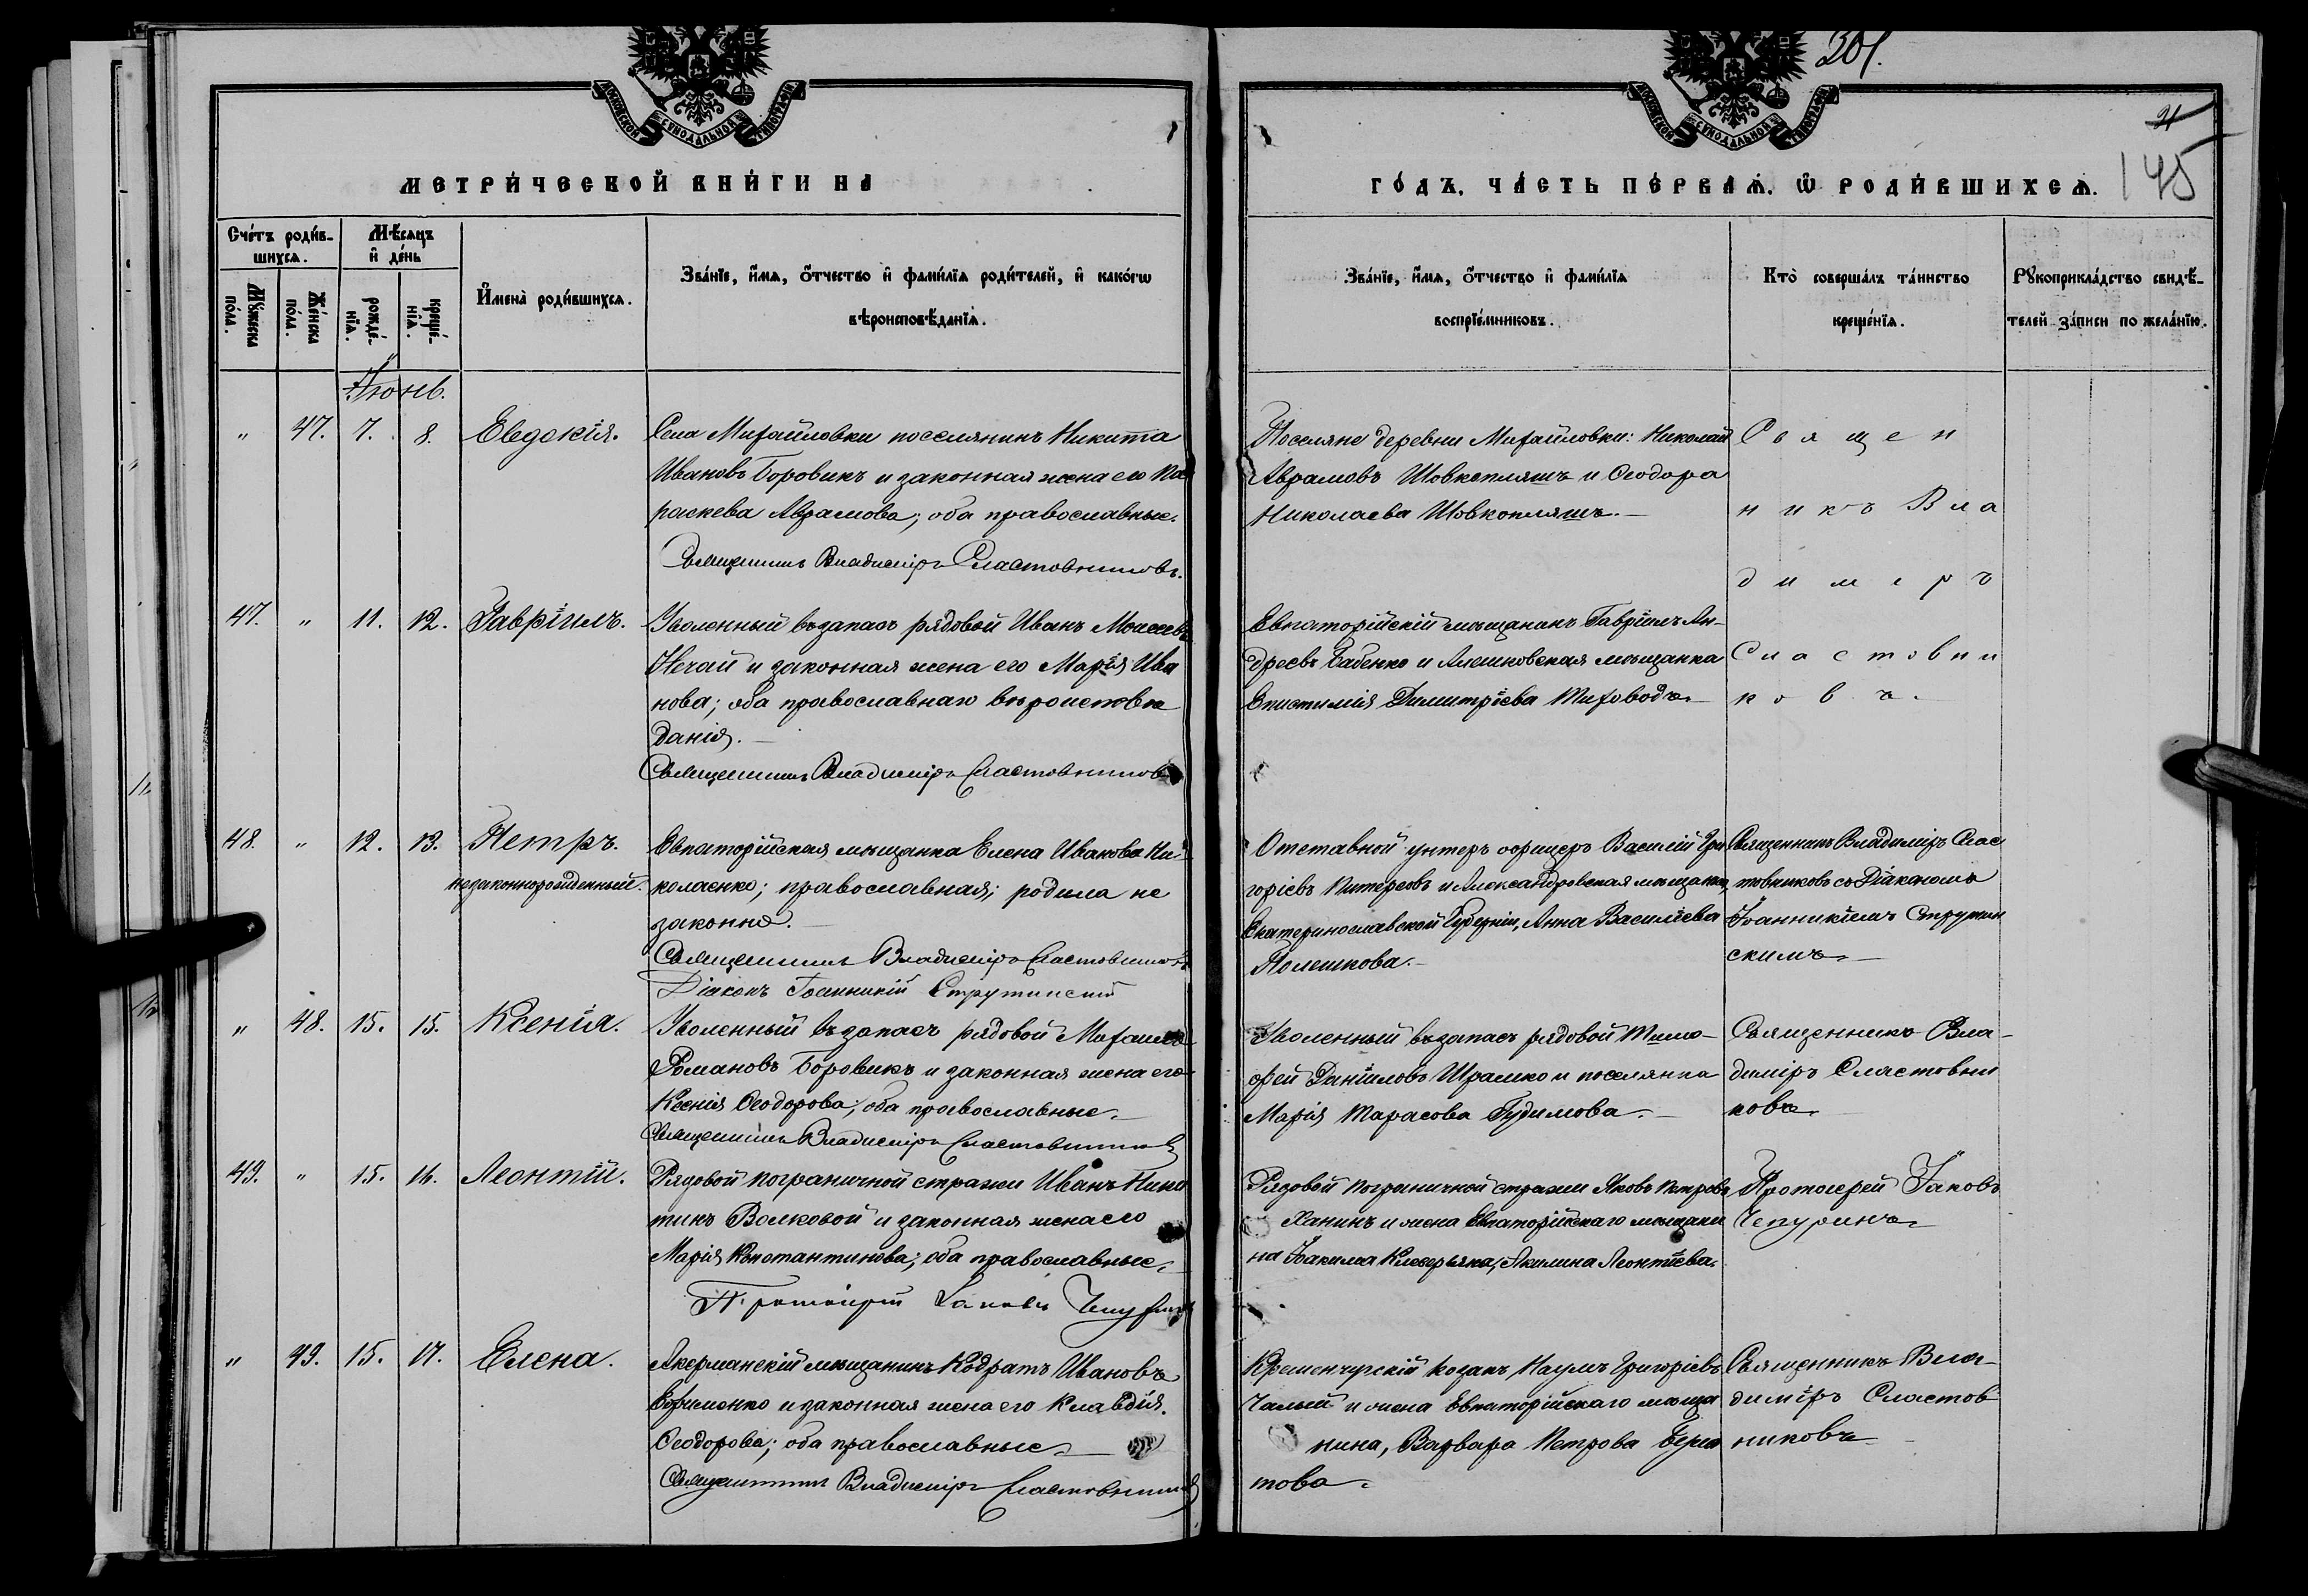 201.
21
145
МОСКОВСКОЙ СѴНОДАЛЬНОЙ ТИПОГРАФІИ
МОСКОВСКОЙ СѴНОДАЛЬНОЙ ТИПОГРАФІИ
МЕТРИ́ЧЕСКОЙ КНИ́ГИ НА
ГО́ДЪ, ЧА́СТЬ ПЕ́РВАѦ, Ѡ҆ РОДИ́ВШИХСѦ.
Сче́тъ роди́в-
шихсѧ.
Мѣ́сѧцъ
и҆ де́нь
Мꙋ́жеска
по́ла.
Же́нска
по́ла.
рожде́-
нїѧ.
креще́-
нїѧ.
И҆мена̀ роди́вшихсѧ.
Зва́нїе, и҆́мѧ, ѻ҆́тчество и҆ фами́лїѧ роди́телей, и҆ како́гѡ
вѣроисповѣ́данїѧ.
Зва́нїе, и҆́мѧ, ѻ҆́тчество и҆ фами́лїѧ
воспрїе́мниковъ.
Кто̀ соверша́лъ та́инство
креще́нїѧ.
Рꙋкоприкла́дство свидѣ́-
телей за́писи по жела́нїю.
Іюнь.
" 47. 7. 8. Евдокія.
Села Михайловки поселянинъ Никита
Ивановъ Боровикъ и законная жена его Па
раскева Аврамова; оба православные.
Священникъ Владиміръ Сластовниковъ.
Поселяне деревни Михайловки: Николай
Аврамовъ Шовкопляшъ и Ѳеодора
Николаева Шовкопляшъ.
Священ
никъ Вла
диміръ
Сластовни
ковъ.
47. " 11. 12. Гавріилъ.
Уволенный въ запасъ рядовой Иванъ Моисеевъ
Нечай и законная жена его Марія Ива
нова; оба православнаго вѣроисповѣ
данія.
Священникъ Владиміръ Сластовниковъ
Евпаторійскій мѣщанинъ Гавріилъ Ан-
дреевъ Бабенко и Алешковская мѣщанка
Епистимія Димитріева Тиховодъ.
48. " 12. 13. Петръ.
незаконнорожденный.
Евпаторійская мѣщанка Елена Иванова Ни-
колаенко; православная; родила не
законно.
Священникъ Владиміръ Сластовниковъ
Діаконъ Іоанникій Струтинскій
Отставной унтеръ офицеръ Василій Гри
горіевъ Питерсовъ и Александровская мѣщанка,
Екатеринославской Губерніи, Анна Василіева
Полешкова.
Священникъ Владиміръ Слас
товниковъ съ Діакономъ
Іоанникіемъ Струтин
скимъ.
" 48. 15. 15. Ксенія.
Уволенный въ запасъ рядовой Михаилъ
Романовъ Боровикъ и законная жена его
Ксенія Ѳеодорова; оба православные.
Священникъ Владиміръ Сластовниковъ
Уволенный въ запасъ рядовой Тимо-
фей Даніиловъ Шрамко и поселянка
Марія Тарасова Гудимова.
Священникъ Вла-
диміръ Сластовни
ковъ.
49. " 15. 16. Леонтій.
Рядовой пограничной стражи Иванъ Ники
тинъ Волковой и законная жена его
Марія Константинова; оба православные.
Протоіерей Іаковъ Чепуринъ
Рядовой пограничной стражи Яковъ Петровъ
Ханинъ и жена Евпаторійскаго мѣщани
на Іоакима Акилина Леонтіева.
Протоіерей Іаковъ
Чепуринъ.
" 49. 15. 17. Елена.
Акерманскій мѣщанинъ Кодратъ Ивановъ
Ефименко и законная жена его Клавдія
Ѳеодорова; оба православные.
Священникъ Владиміръ Сластовниковъ
Кременчугскій козакъ Наумъ Григоріевъ
Чалый и жена Евпаторійскаго мѣща
нина, Варвара Петрова
това.
Священникъ Вла-
диміръ Сластов
никовъ